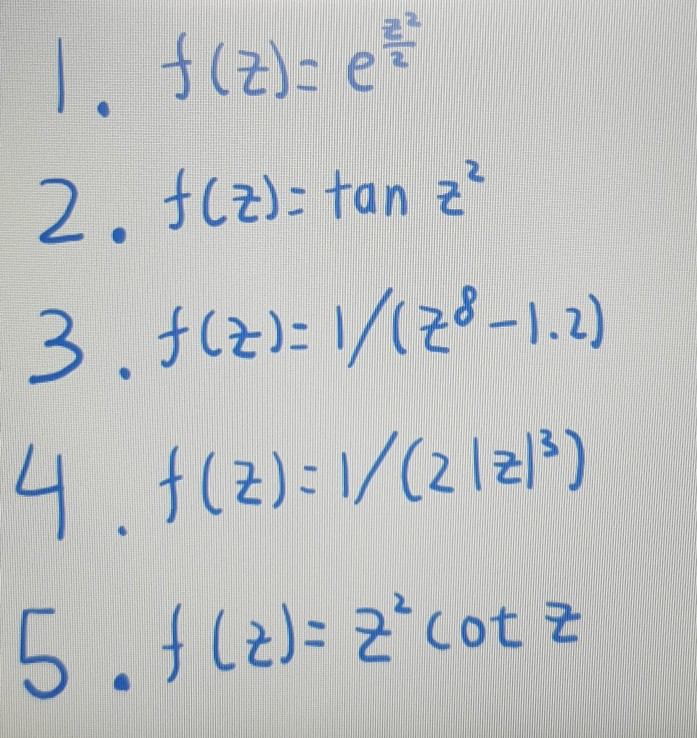 1. f(z)= e^{\frac{z^2}{2}}
2. f(z)= tan z^2
3. f(z)= 1/(z^8-1.2)
4. f(z)= 1/(2|z|^3)
5. f(z)= z^2 cot z